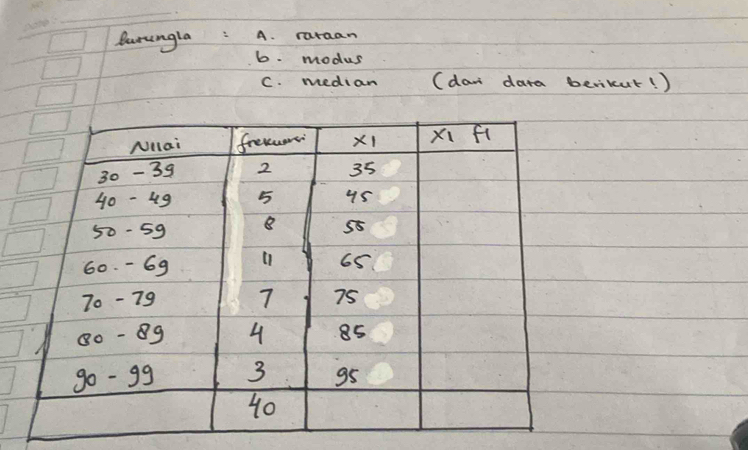 burungla : A. rataan
b. modus
c. median (dari data berikut!)
Nilai frekuensi XI XI fI
30 - 39 2 35
40 - 49 5 45
50 - 59 8 55
60 - 69 11 65
70 - 79 7 75
80 - 89 4 85
90 - 99 3 95
40